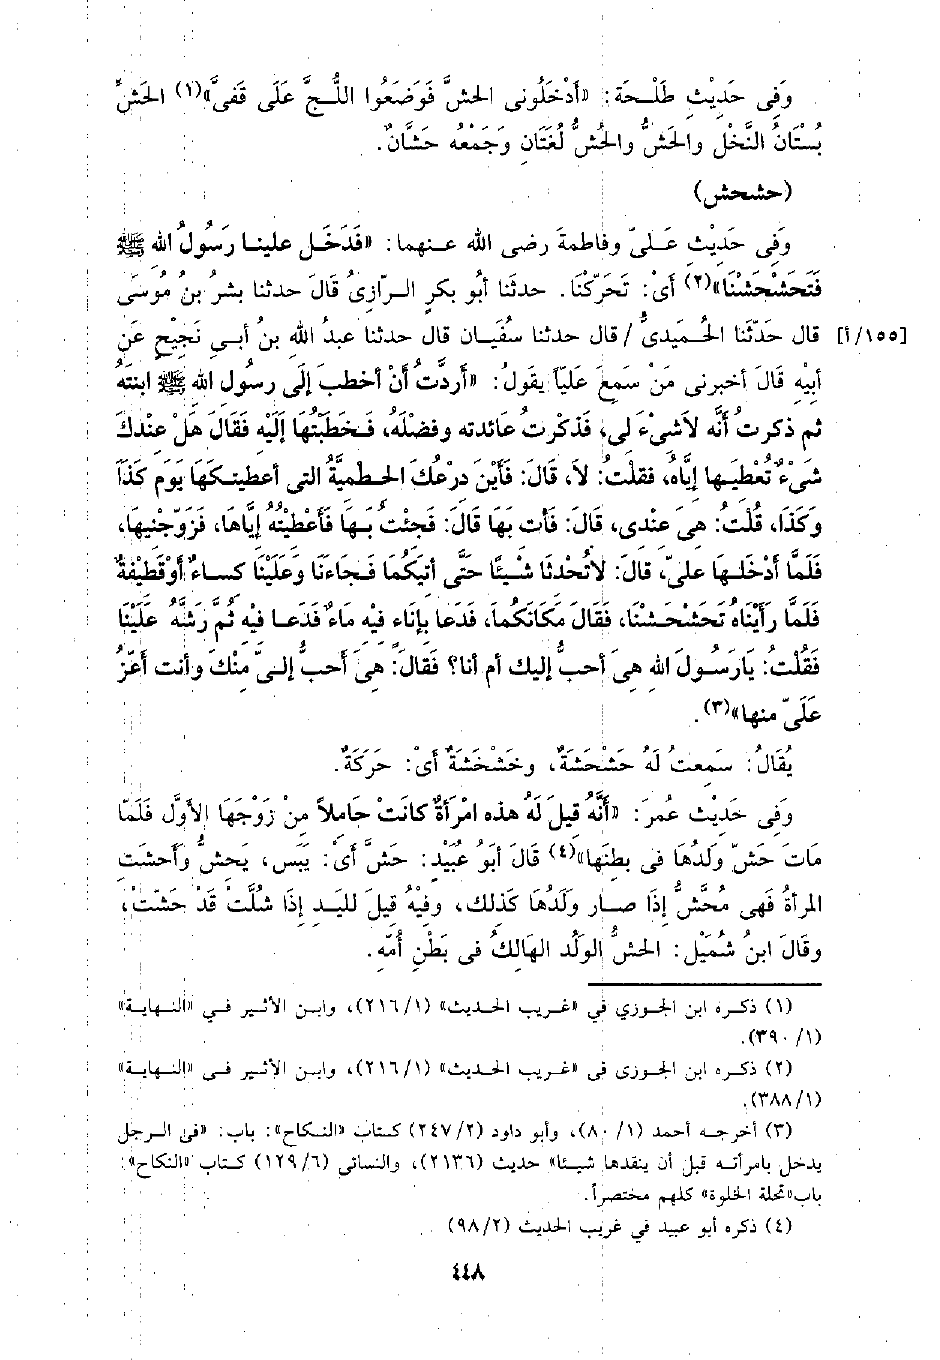 وَفِى حَدِيْثِ طَلْحَة: «أَدْخَلُونى الحشَّ فَوَضَعُوا اللُّجَّ عَلَى قَفىَّ»(١) الحَشُّ
بُسْتَانُ النَّخْل والحَشُّ والحُشُّ لُغَتَان وَجَمْعُه حَشَّانٌ.
(حشحش)
وَفِى حَدِيْث عَلىّ وفاطمةَ رضى الله عنهما: «فَدَخَل علينا رَسُولُ الله ﷺ
فَتَحَشْحَشْنَا»(٢) أىْ: تَحَرّكْنَا. حدثنا أبُو بكرٍ الرّازِى قَالَ حدثنا بشرُ بنُ مُوسَى
[١٥٥/أ] قال حَدّثَنَا الحُمَيدىُّ / قال حدثنا سُفْيَان قال حدثنا عبدُ الله بنُ أبى نَجيْحٍ عَن
أبيْهِ قَالَ أخبرنى مَنْ سَمِعَ عَليًا يقولُ: «أَردْتُ أنْ أخطبَ إِلَى رسُول الله ﷺ ابنتَهُ
ثم ذكرتُ أنَّه لاَشىْءَ لى، فَذكرْتُ عَائدته وفضْلَهُ، فَخَطَبْتُهَا إلَيْهِ فَقَالَ هَلْ عِنْدكَ
شَىْءٌ تُعْطِيهَا إيَّاهُ، فقلتُ: لاَ، قَالَ: فَأَيْنَ دِرْعُكَ الحطميةُ التى أعطيتكَهَا يَوَمَ كَذَا
وَكَذَا، قُلْتُ: هىَ عندى، قَالَ: فَأت بَهَا قَالَ: فَجئْتُ بَهَا فَأعْطَيْتُه إيَّاهَا، فَزَوّجَنِيهَا،
فَلَمَّا أدْخَلَهَا علىّ، قال: لاتُحْدثَا شيْئًا حتَّى أتيكُمَا فَجاءَنَا وعَلَيْنَا كساءٌ أوْقَطيفةٌ
فَلَمَّا رَأَيْنَاهُ تَحَشْحَشْنَا، فَقَالَ مَكَانَكُمَا، فَدَعَا بإنَاءٍ فيْهِ مَاءٌ فَدَعَا فيْه ثُمَّ رَشَّهُ عَلَيْنَا
فَقُلْتُ: يَارَسُولَ الله هىَ أحبُّ إليك أم أنا؟ فَقَالَ: هىَ أَحبُّ إلىّ منْكَ وأنت أعَزُّ
عَلَىّ منها»(٣).
يُقَالُ: سَمعتُ لَهُ حَشْحَشَةٌ، وخَشْخَشَةٌ أىْ: حَرَكَةٌ.
وَفى حَديْث عُمرَ: «أَنَّهُ قيلَ لَهُ هذه امْرَأةٌ كانَتْ حَاملاً منْ زَوْجهَا الأوَّل فَلَمّا
مَاتَ حَشّ وَلَدُهَا فى بطنهَا»(٤) قَالَ أبُو عُبَيْد: حَشّ أىْ: يَبَس، يَحشُّ وأَحشت
المرأةُ فَهى مُحَشٌّ إذَا صار ولَدُهَا كَذلك، وفيْهُ قيلَ لليَد إذَا شُلَّتْ قَدْ حَشّت،
وقَالَ ابنُ شُمَيْل: الحَشُّ الولَد الهَالكُ فى بَطْنِ أُمّه.
(١) ذكره ابن الجوزي في «غريب الحديث» (٢١٦/١)، وابن الأثير في «النهاية»
(٣٩٠/١).
(٢) ذكره ابن الجوزى فى «غريب الحديث» (٢١٦/١)، وابن الأثير فى «النهاية»
(٣٨٨/١).
(٣) أخرجه أحمد (٨٠/١)، وأبو داود (٢٤٧/٢) كتاب «النكاح»: باب: «فى الرجل
يدخل بامرأته قبل أن ينقدها شيئا» حديث (٢١٣٦)، والنسائى (١٢٩/٦) كتاب «النكاح»:
باب«نحلة الخلوة» كلهم مختصراً.
(٤) ذكره أبو عبيد في غريب الحديث (٩٨/٢)
٤٤٨